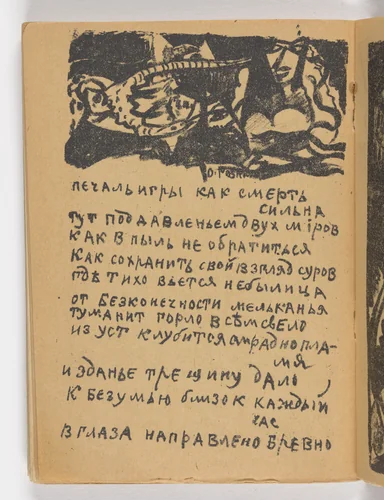 О. РОЗАН
ПЕЧАЛЬ ИГРЫ КАК СМЕРТЬ
СИЛЬНА
ТУТ ПОД ДАВЛЕНЬЕМ ДВУХ МІРОВ
КАК В ПЫЛЬ НЕ ОБРАТИТЬСЯ
КАК СОХРАНИТЬ СВОЙ ВЗГЛЯД СУРОВ
ГДѢ ТИХО ВЬЕТСЯ НЕБЫЛИЦА
ОТ БЕЗКОНЕЧНОСТИ МЕЛЬКАНЬЯ
ТУМАНИТ ГОРЛО ВСѢМ СВЕЛО
ИЗ УСТ КЛУБИТСЯ СМРАДНО ПЛА-
МЯ
И ЗДАНЬЕ ТРЕЩИНУ ДАЛО,
К БЕЗУМЬЮ БЛИЗОК КАЖДЫЙ
ЧАС
В ГЛАЗА НАПРАВЛЕНО БРЕВНО